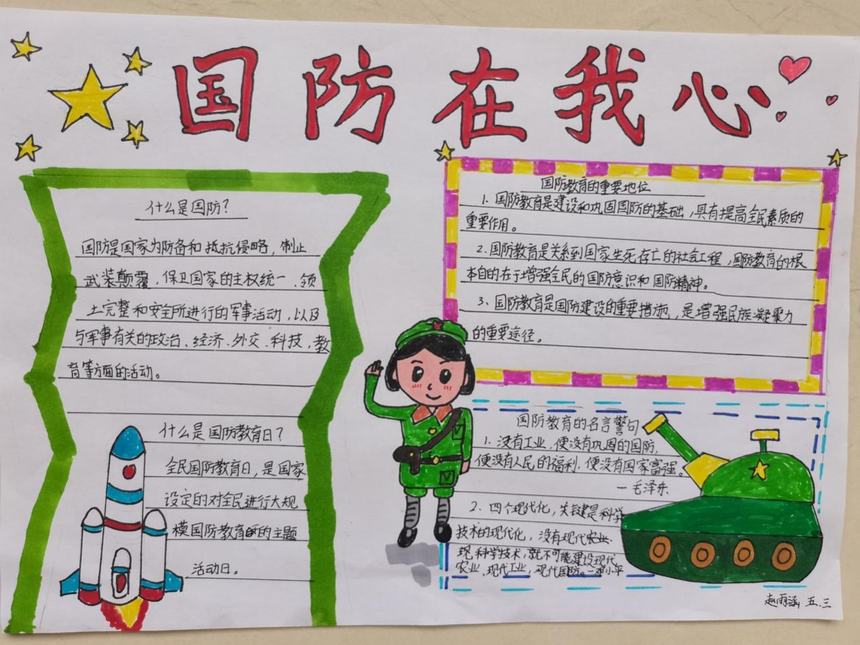 国防在我心
什么是国防？
国防是国家为防备和抵抗侵略，制止
武装颠覆，保卫国家的主权统一、领
土完整和安全所进行的军事活动，以及
与军事有关的政治、经济、外交、科技，教
育等方面的活动。
什么是国防教育日？
全民国防教育日，是国家
设定的对全民进行大规
模国防教育的主题
活动日。
国防教育的重要地位
1、国防教育是建设和巩固国防的基础，具有提高全民素质的
重要作用。
2、国防教育是关系到国家生死存亡的社会工程，国防教育的根
本目的在于增强全民的国防意识和国防精神。
3、国防教育是国防建设的重要措施，是增强民族凝聚力
的重要途径。
国防教育的名言警句
1、没有工业，便没有巩固的国防，
便没有人民的福利，便没有国家富强。
—毛泽东
2、四个现代化，关键是科学
技术的现代化，没有现代
科学技术，就不可能建设现代
农业、现代工业，现代国防。—邓小平
赵雨涵 五、三